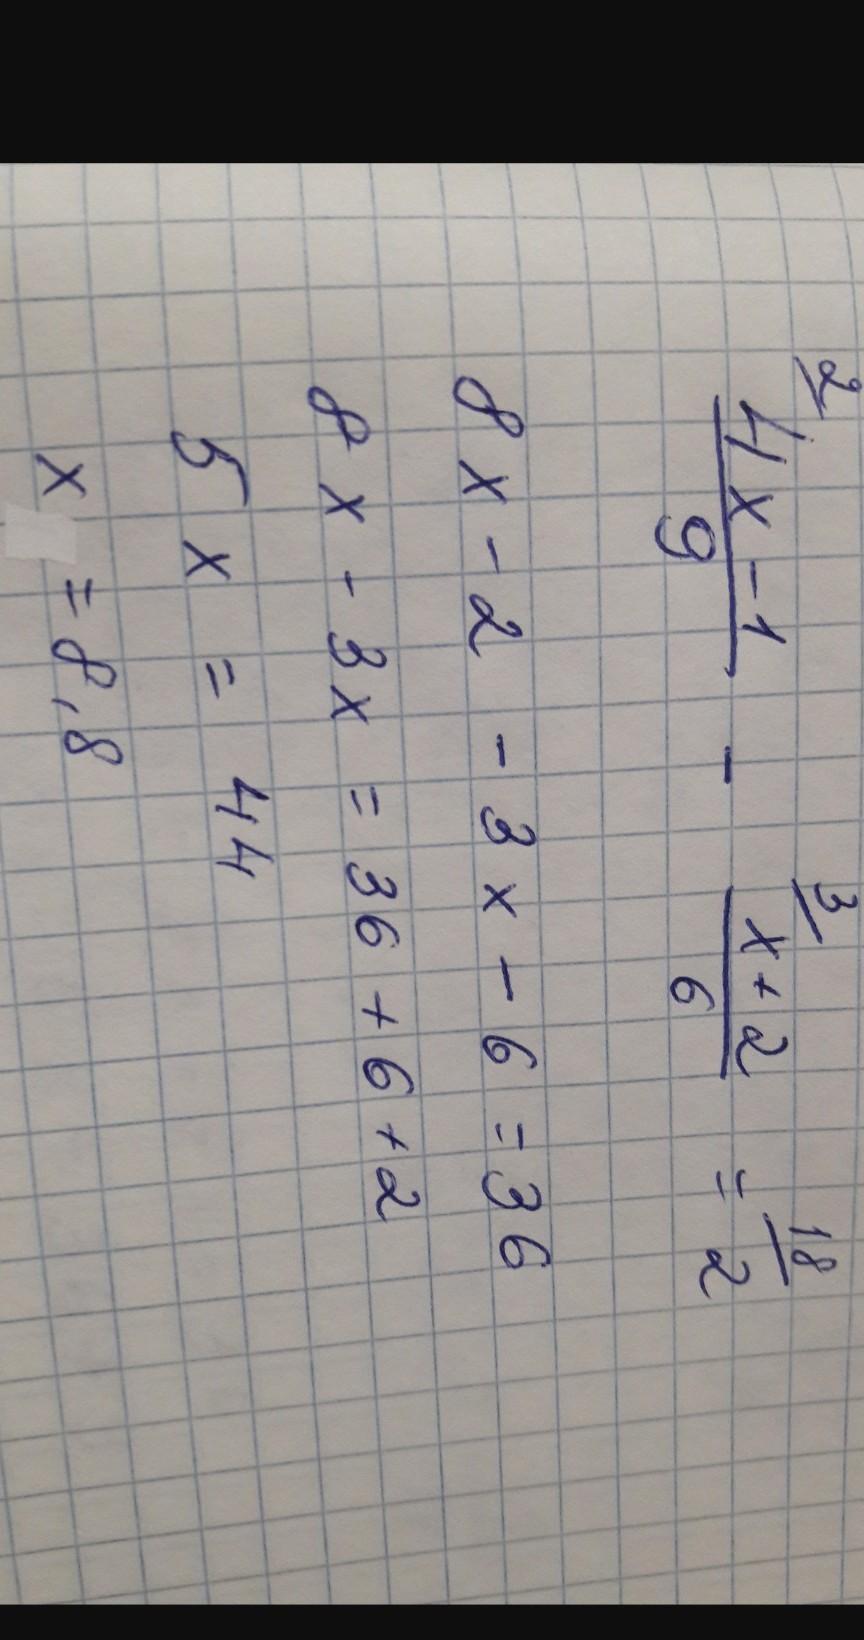 2 3 18
4x-1/9 - x+2/6 = 2
8x-2-3x-6=36
8x-3x=36+6+2
5x=44
x=8,8